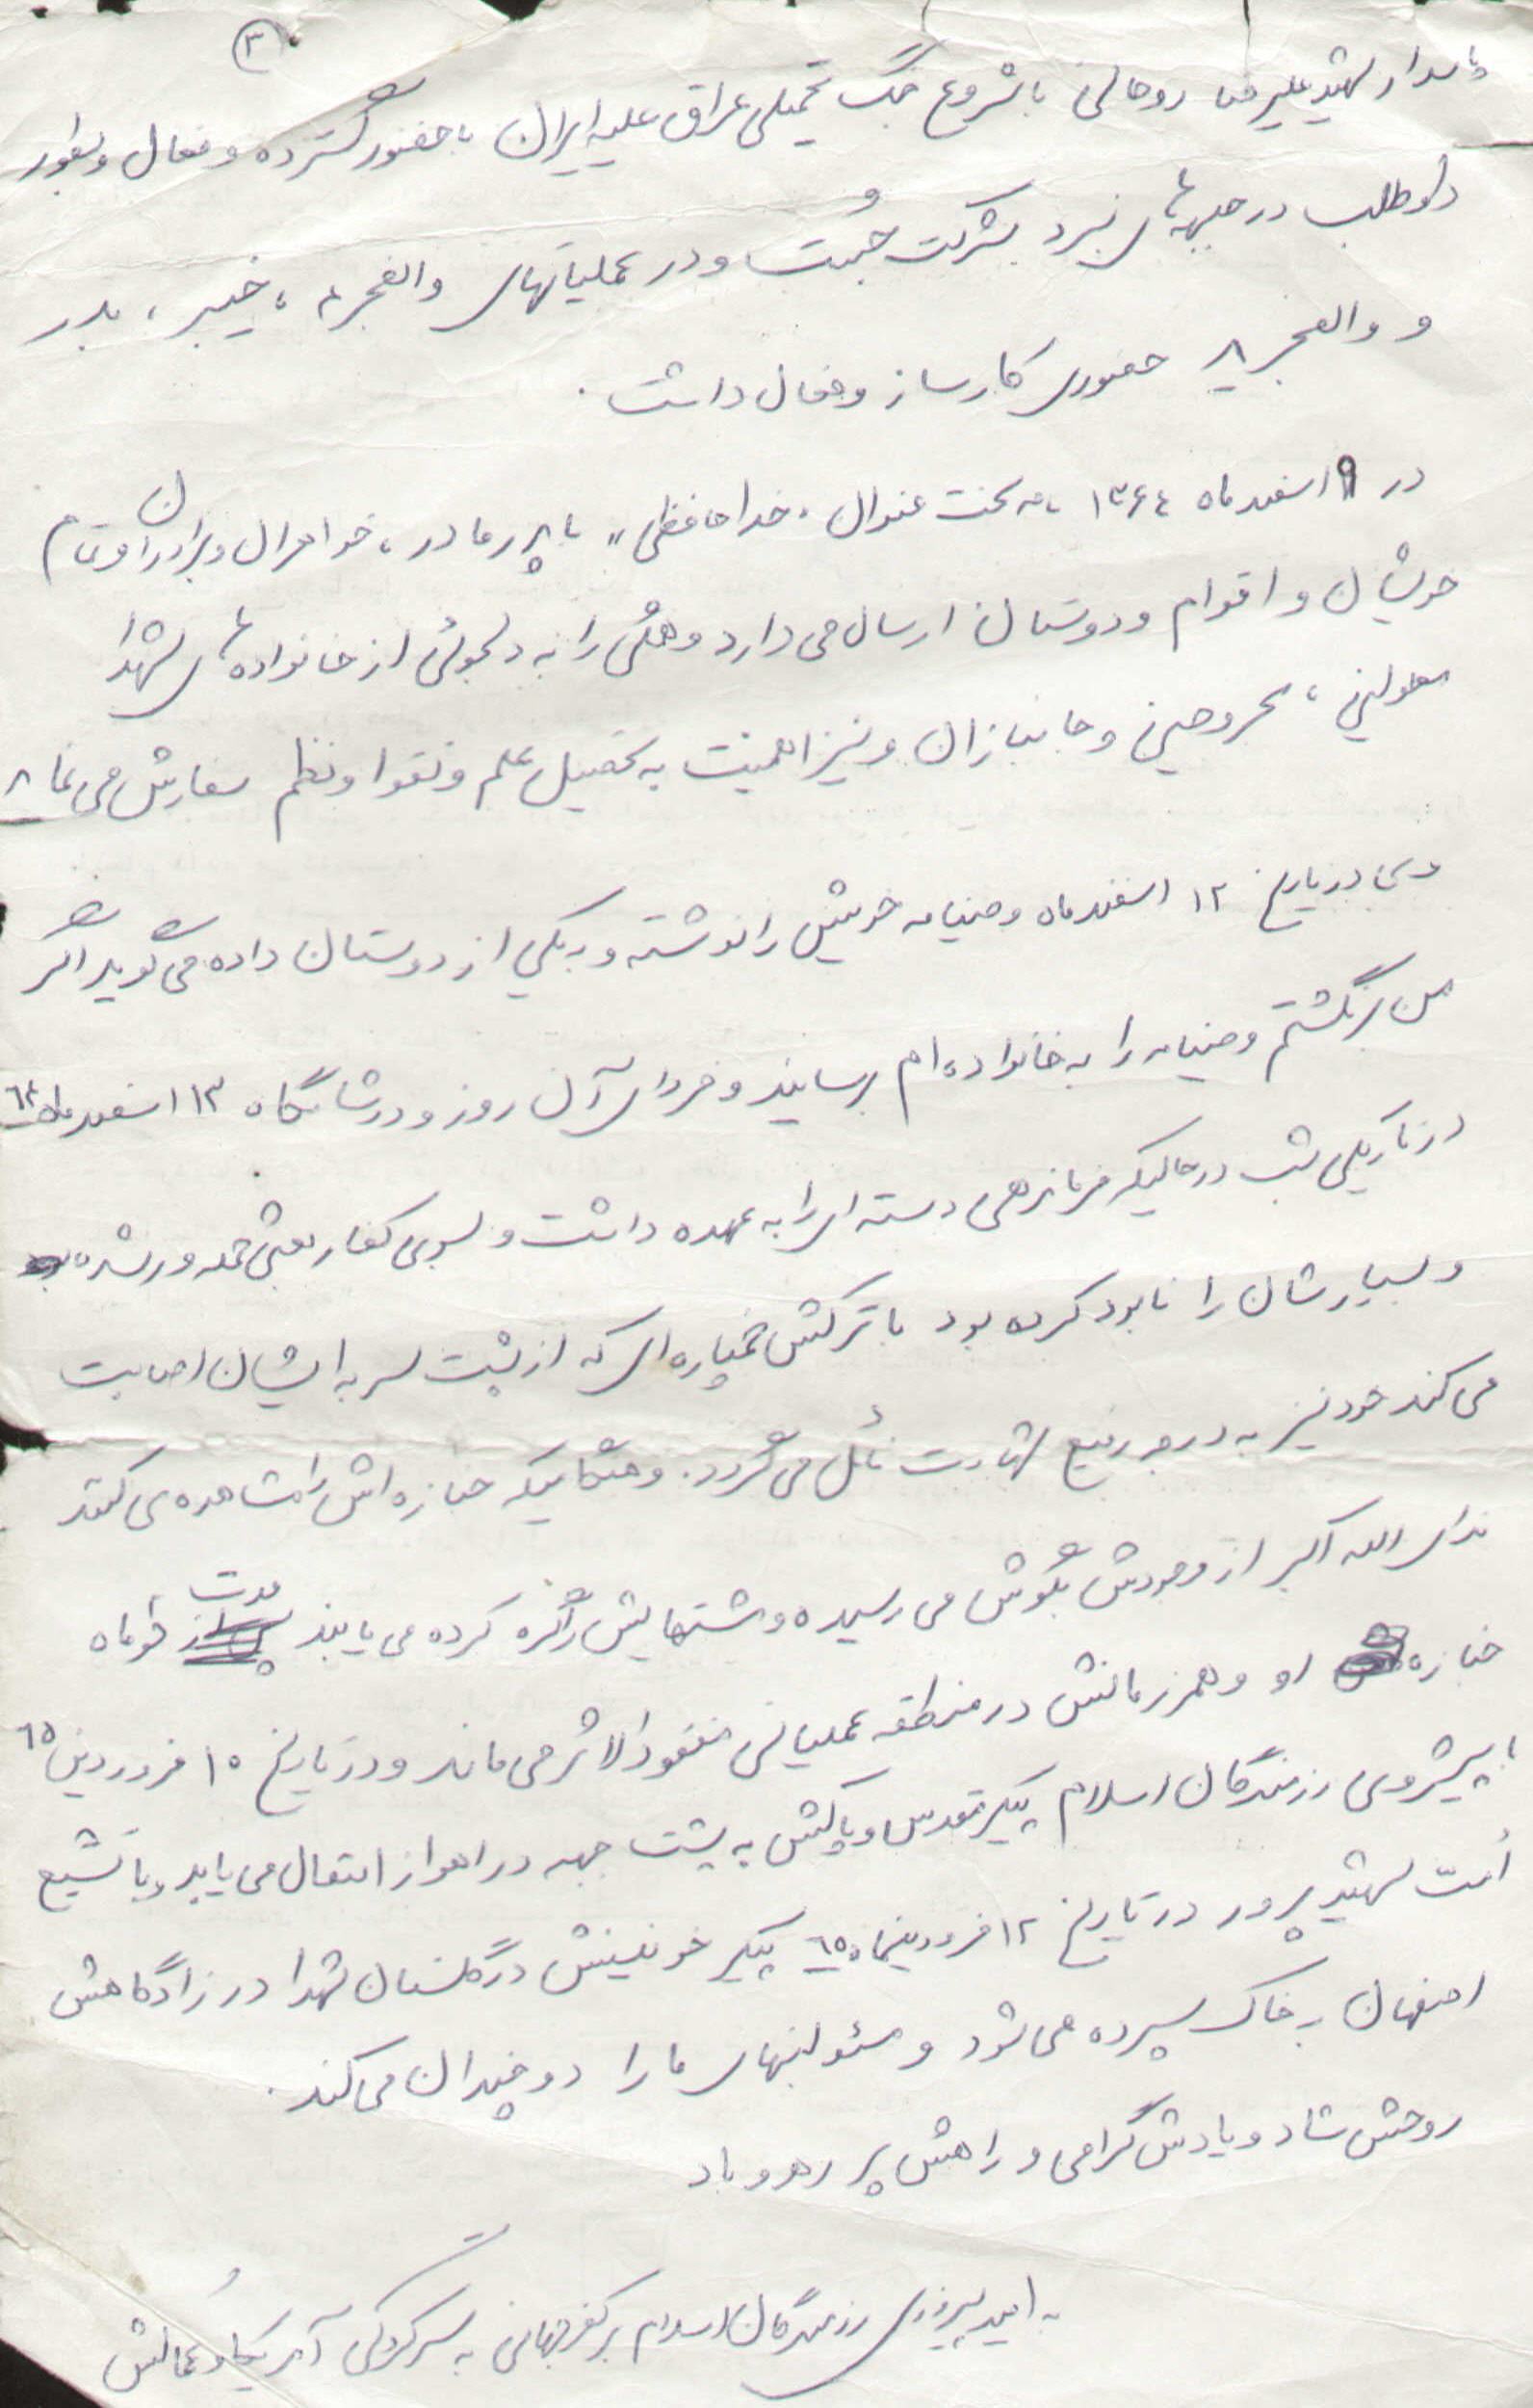 ۳
پاسدار شهید علیرضا روحانی با شروع جنگ تحمیلی عراق علیه ایران با حضور گسترده و فعال و بطور
داوطلب در جبهه‌های نبرد شرکت جُست و در عملیاتهای والفجر ۴، خیبر، بدر
و والفجر ۸ حضوری کارساز و فعال داشت.
در ۱۱ اسفند ماه ۱۳۶۴ نامه تحت عنوان «خداحافظی» با پدر و مادر، خواهران و برادران و تمام
خویشان و اقوام و دوستان ارسال می دارد و همگی را به دلجوئی از خانواده های شهدا
معلولین، مجروحین و جانبازان و نیز اهمیت به تحصیل علم و تقوا و نظم سفارش می نماید
وی در تاریخ ۱۲ اسفند ماه وصیتنامه خویش را نوشته و به یکی از دوستان داده می گوید اگر
من برنگشتم وصیتنامه را به خانواده ام برسانید و فردای آن روز و در شامگاه ۱۳ اسفند ماه ۶۴
در تاریکی شب در حالیکه فرماندهی دسته ای را به عهده داشت و بسوی کفار بعثی حمله ور شده
و بسیارشان را نابود کرده بود با ترکش خمپاره ای که از پشت سر به ایشان اصابت
می کند خود نیز به درجه رفیع شهادت نائل می گردد. و هنگامیکه جنازه اش را مشاهده می کنند
ندای الله اکبر از وجودش بگوش می رسیده و مشتهایش را گره کرده می یابند مدت دو ماه
جنازه او و همرزمانش در منطقه عملیاتی مفقودالاثر می ماند و در تاریخ ۱۰ فروردین ۶۵
با پیشروی رزمندگان اسلام پیکر مقدس و پاکش به پشت جبهه در اهواز انتقال می یابد و با تشییع
اُمت شهید پرور در تاریخ ۱۲ فروردینماه ۶۵ پیکر خونینش در گلستان شهدا در زادگاهش
اصفهان به خاک سپرده می شود و مسئولیتهای ما را دو چندان می کند.
روحش شاد و یادش گرامی و راهش پر رهرو باد
به امید پیروزی رزمندگان اسلام بر کفر جهانی به سرکردگی آمریکا و عمالش